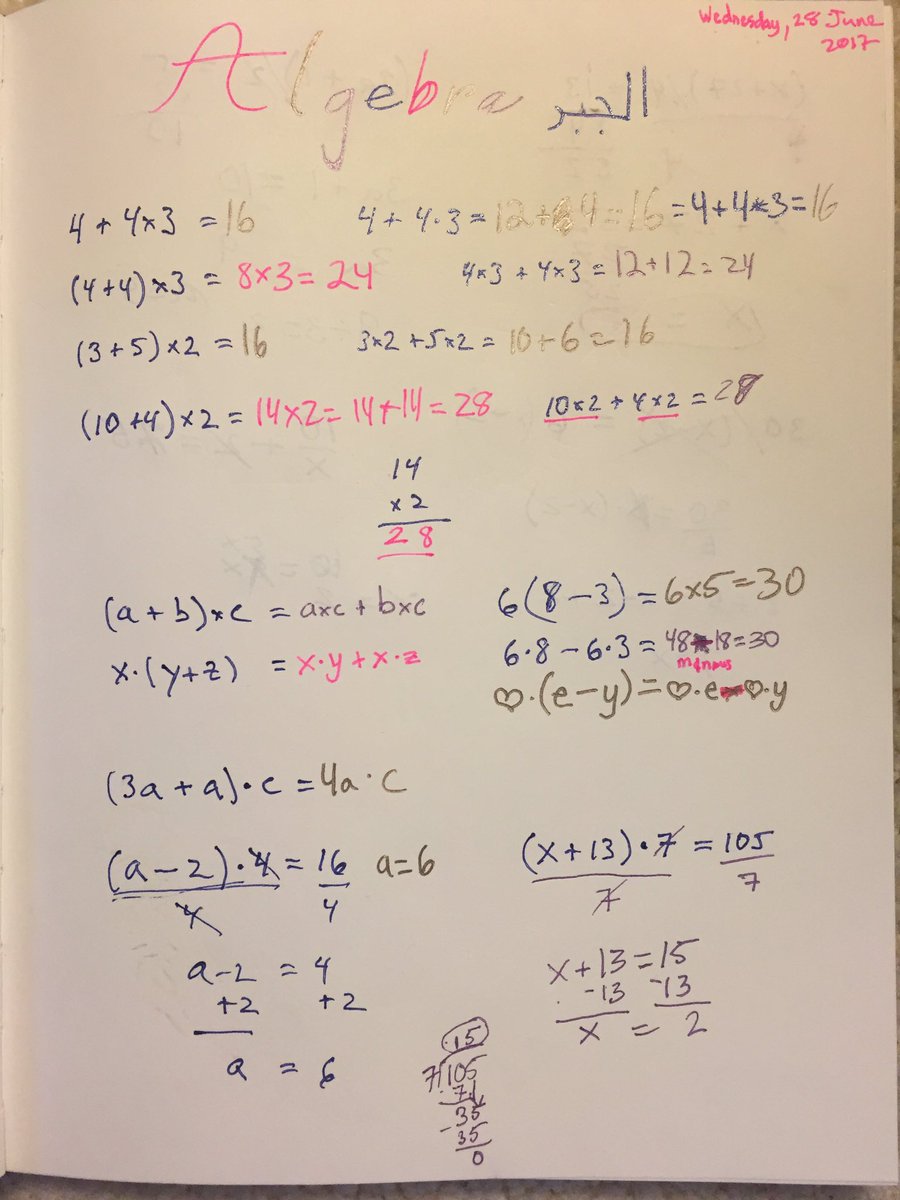 Wednesday, 28 June
2017
Algebra الجبر
4 + 4×3 = 16
4 + 4·3 = 12+4 = 16 = 4+4×3 = 16
(4+4)×3 = 8×3 = 24
4×3 + 4×3 = 12+12 = 24
(3+5)×2 = 16
3×2 + 5×2 = 10+6 = 16
(10+4)×2 = 14×2 = 14+14 = 28
10×2 + 4×2 = 28
14
×2
28
(a+b)×c = a×c + b×c
x·(y+z) = x·y + x·z
6(8-3) = 6×5 = 30
6·8 - 6·3 = 48 - 18 = 30
minus
♡·(e-y) = ♡·e - ♡·y
(3a+a)·c = 4a·c
(a-2)·4 = 16 a=6
4 4
a-2 = 4
+2 +2
a = 6
(x+13)·7 = 105
7 7
x+13 = 15
-13 -13
x = 2
·15
7 105
-7↓
35
-35
0